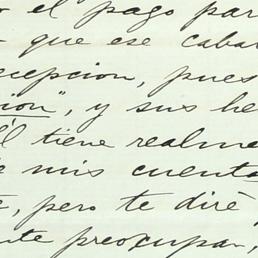 o el pago par
que ese cabal
cepcion, pues
ion", y sus he
Él tiene realme
e mis cuenta
e, pero te diré
nte preocupan,